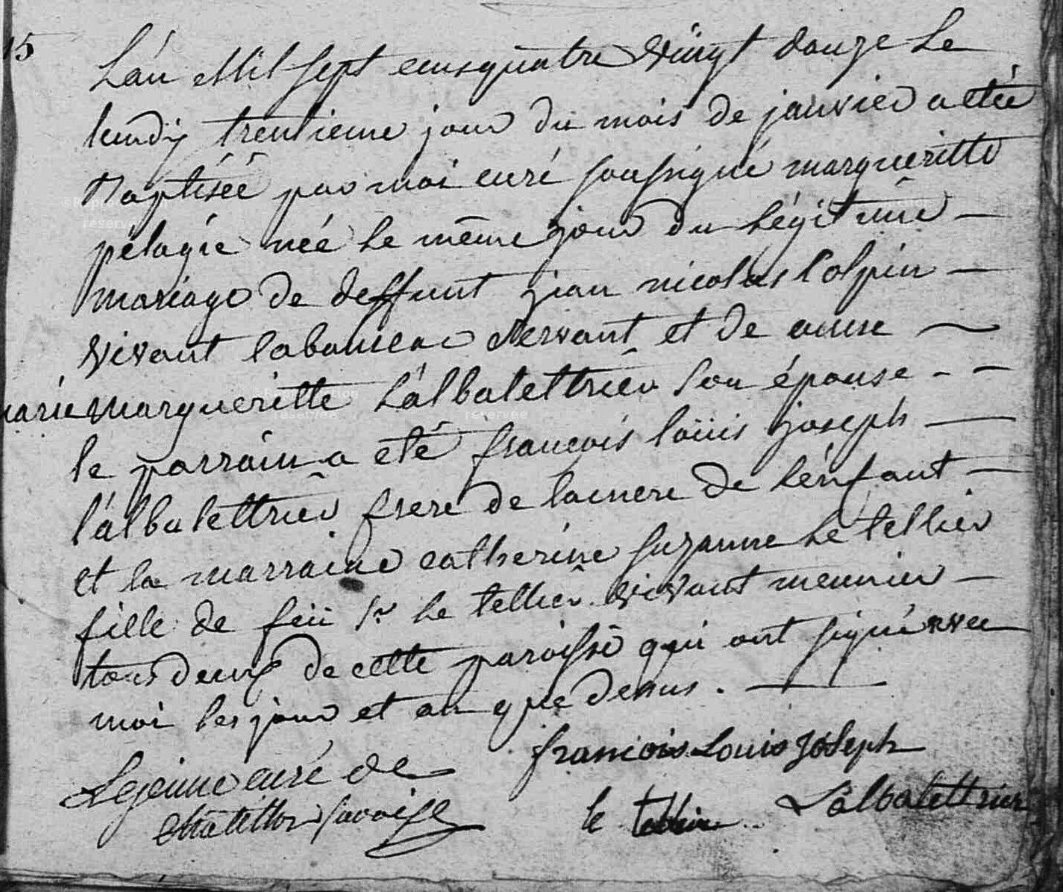 15
L'an Mil sept cens quatre Vingt douze Le
lundy trentieme jour du mois de janvier a etée
Baptisée par moi curé soussigné margueritte
pélagie née le même jour du Légitime
mariage de deffunt jean nicolas lolpin
vivant laboureur et de anne
marie margueritte L'albalettrier son épouse
le parrain a eté françois loüis joseph
l'albalettrier frere de la mere de l'enfant
et la marraine catherine suzanne Le tellier
fille de feü Sr Le tellier vivant meunier
tous deux de cette paroisse qui ont signé avec
moi les jour et an que dessus.
Lejeune curé de
françois Louis Joseph
chatillon
le tellier
L'albalettrier